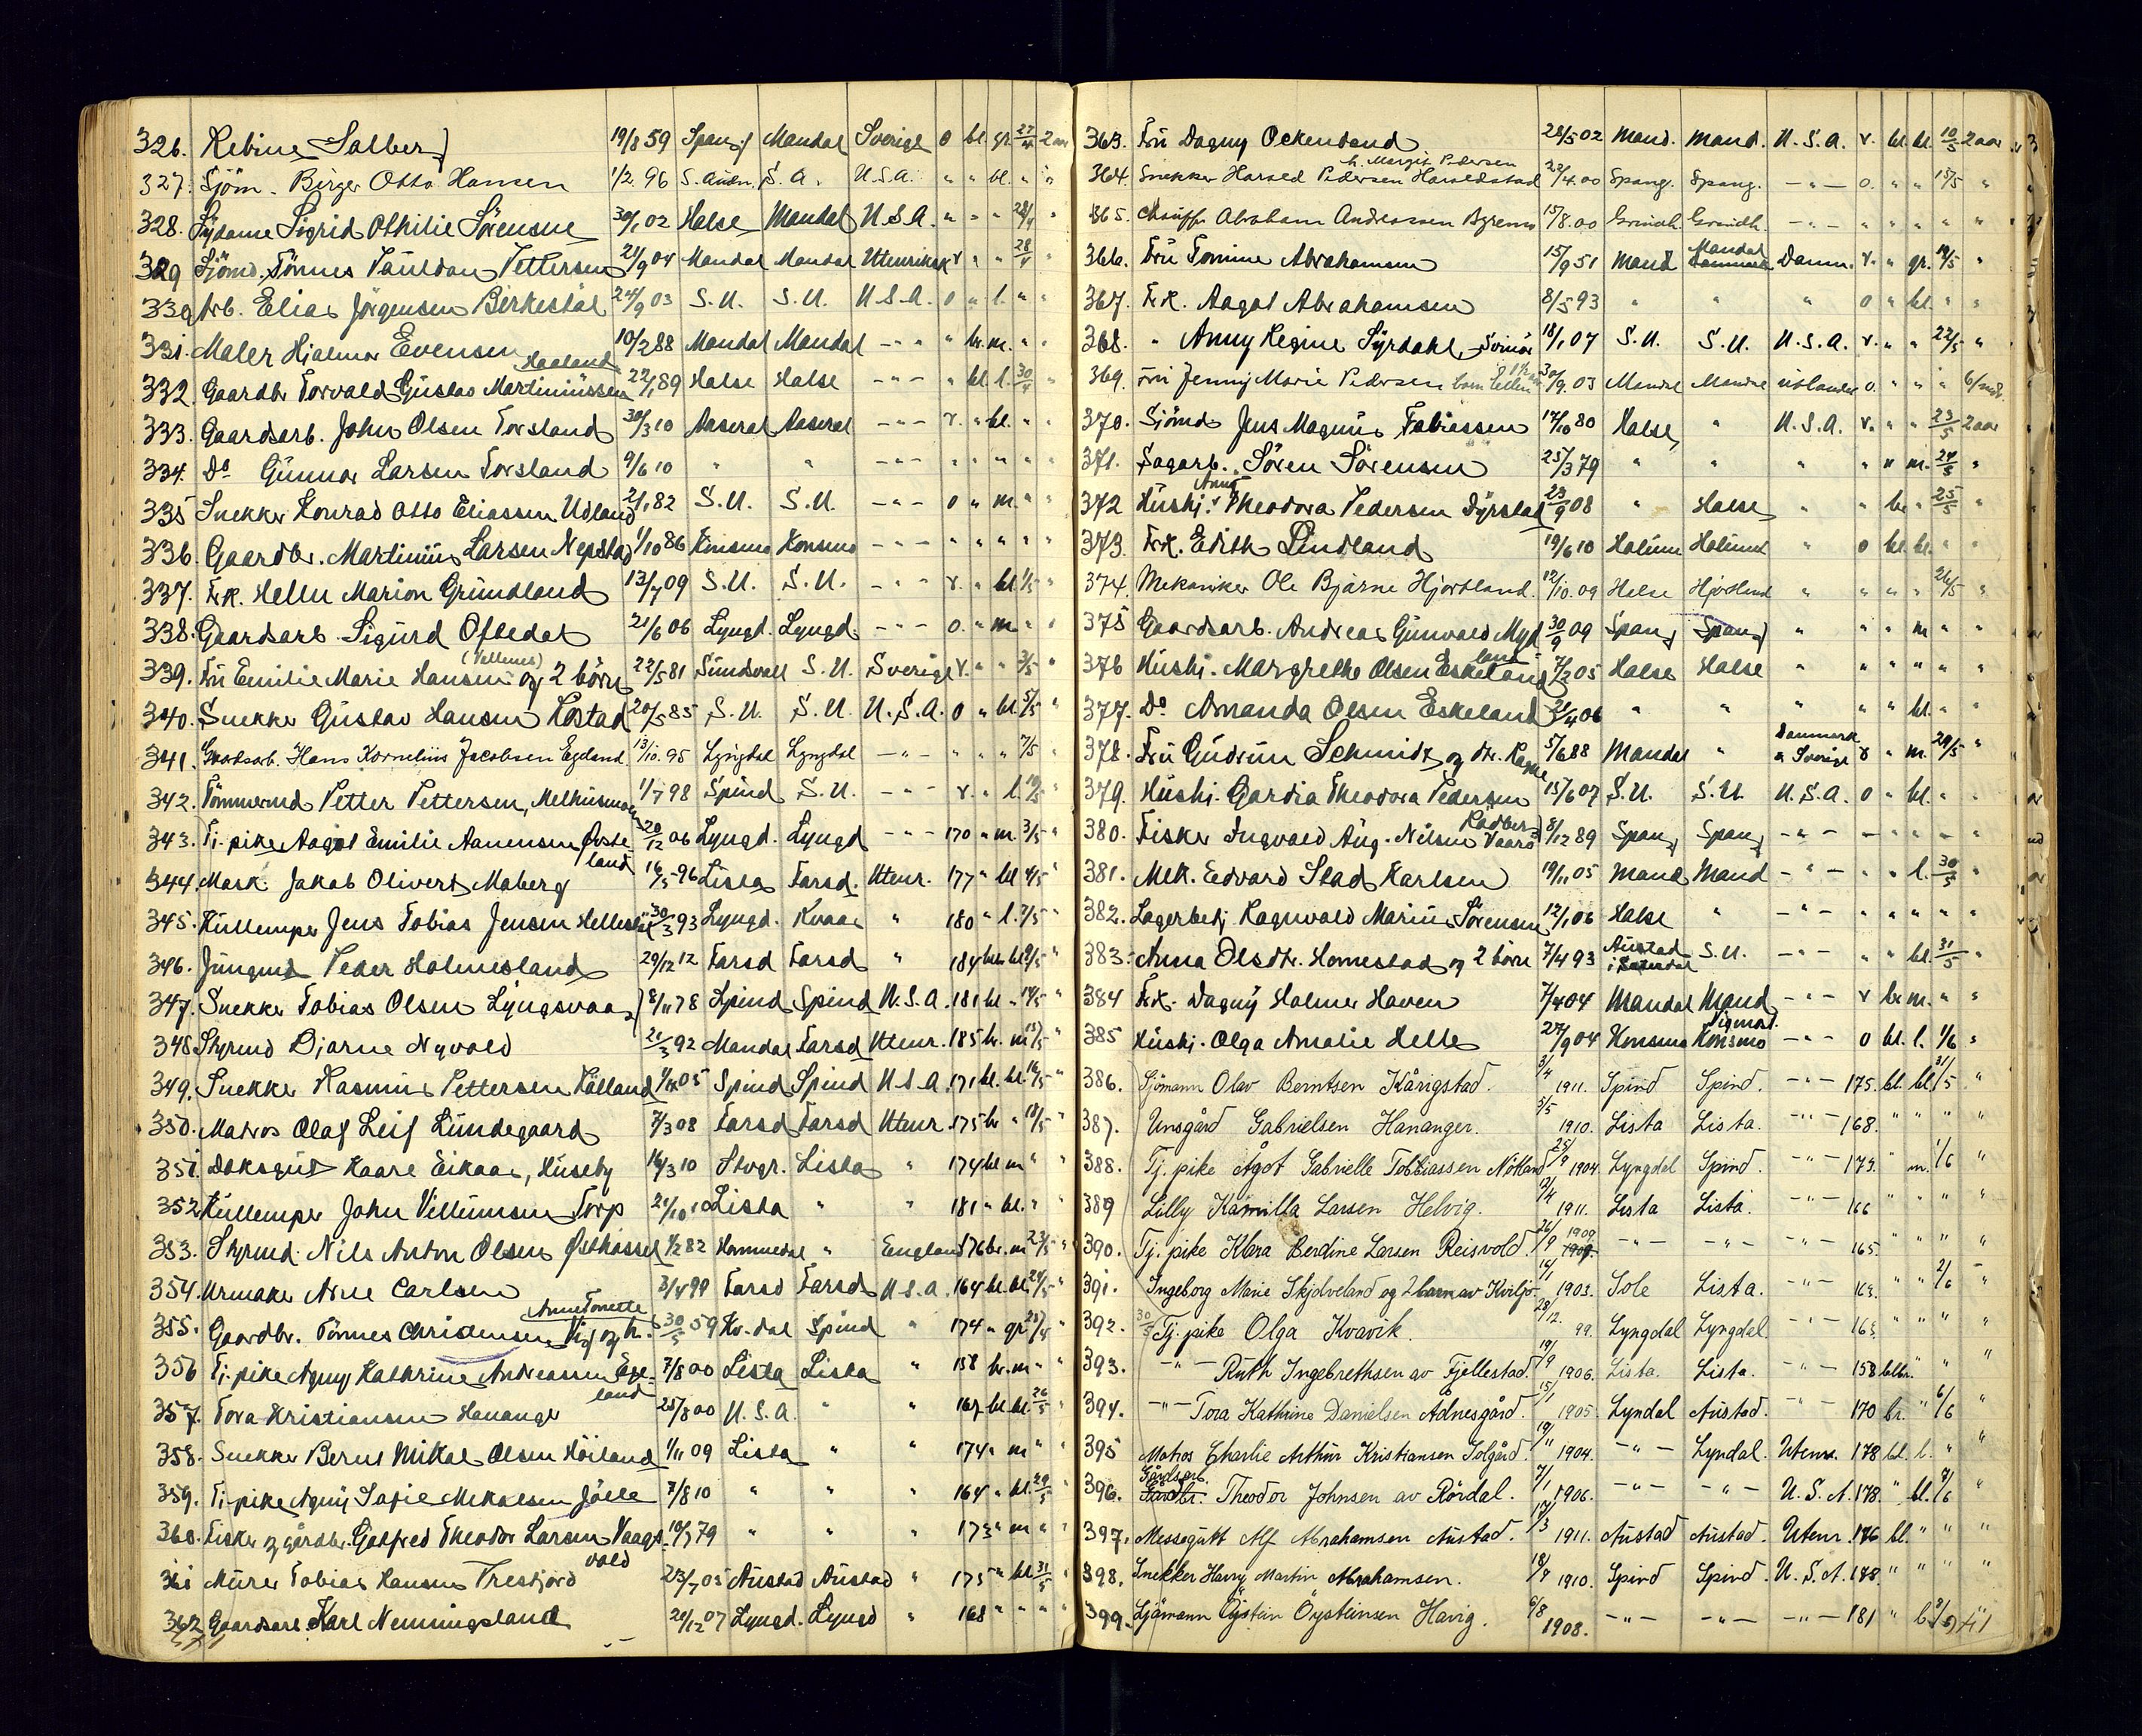 326. Rebine Salberg 19/8 59 Spang Mandal Sverige o bl. gr. 27/4 2 aar
327. Sjöm. Birger Otto Hansen 1/2 96 S. Audn. S. A. U.S.A. " " bl. " "
328. Sydame Sigrid Othilie Sörensen 30/1 02 Halse Mandal U.S.A. " " " 28/4 "
329 Sjömd. Tönnes Pauldan Pettersen 21/9 04 Mandal Mandal Utenriksk v " " 28/4 "
330 Arb. Elias Jörgensen Birkestöl 24/9 03 S.U. S.U. U.S.A. o " l. " "
331. Maler Hjalmar Evensen 10/2 88 Mandal Mandal - " - " br. m. " "
332. Gaardbr Torvald Gustav Martiniussen Haaland 22/1 89 Halse Halse - " - " bl. l. 30/4 "
333. Gaardsarb. John Olsen Torsland 30/3 10 Aaseral Aaseral - " - v. " bl. " "
334. Do Gunnar Larsen Torsland 9/6 10 " " - " - " " " " "
335 Snekker Konrad Otto Eliassen Udland 2/1 82 S.U. S.U. - " - o " m. " "
336. Gaardbr. Martinius Larsen Nepstad 1/10 86 Konsmo Konsmo - " - " " " " "
337. Frk. Hellu Marion Grundland 13/7 09 S.U. S.U. - " - v. " bl. 1/5 "
338. Gaardsarb. Sigurd Oftedal 21/6 06 Lyngd. Lyngd. - " - o. " m " "
339. Fru Emilie Marie Hansen (Vellenes) og 2 börn 22/5 81 Sundsvall S.U. Sverige v. " " 3/5 "
340. Snekker Gustav Hansen Kostad 20/5 85 S.U. S.U. U.S.A. o " bl. 5/5 "
341. Gaardsarb. Hans Kornelius Jacobsen Egeland 13/10. 95 Lyngdal Lyngdal - " - " " " 7/5 "
342. Tömmermd Petter Pettersen, Melhusmoen 1/7 98 Spind S.U. - " - v. " l. "
343. Tj. pike Aagot Emilie Aanensen Örteland 20/12 06 Lyngd. Lyngd - " - 170 " m. 3/5 "
344. Mask. Jakob Olivert Maberg 16/5 96 Lista Farsd. Utenr. 177 " bl 4/5 "
345. Kullemper Jens Tobias Jensen 30/3 93 Lyngd. Kvaas " 180 " l. 7/5 "
346. Jungmd Peder Holmesland 29/12 12 Farsd Farsd " 184 br bl 9/5 "
347. Snekker Tobias Olsen Lyngsvaag 8/11 78 Spind Spind U.S.A. 181 bl. " 14/5 "
348. Styrmd Bjarne Nyvold 21/3 92 Mandal Farsd Utenr. 185 br. m 15/5 "
349. Snekker Rasmus Pettersen Kålland 05 Spind Spind U.S.A. 171 bl. bl. 16/5 "
350. Matros Olaf Leif Lundegaard 7/3 08 Farsd Farsd Utenr. 175 br " 18/5 "
351. Doksgut Kaare Eikaas, Huseby 16/3 10 Stvgr. Lista " 174 bl m " "
352. Kullemper John Villumsen Torp 21/10 10 Lista " " 181 " bl. " "
353. Styrmd. Nils Anton Olsen Östhassel 1/2 82 Hommedal " England 176 br. m 23/5 "
354. Urmaker Arne Carlsen 3/4 99 Farsd Farsd U.S.A. 164 bl. bl. 24/5 "
355. Gaardbr. Tönnes Christensen Vig og h. Anne Tonette 30/5 59 Kv.dal Spind " 174 " gr "
356 Tj. pike Agny Kathrine Andreassen Egeland 7/8 00 Lista Lista " 158 br. m " "
357. Tora Kristiansen Hananger 25/8 00 U.S.A. " " 167 bl bl. 26/5 "
358. Snekker Bernt Mikal Olsen Höiland 1/11 09 Lista " " 174 " m " "
359. Tj. pike Agny Sofie Mikalsen Jölle 7/8 10 " " " 164 " bl. 29/5 "
360. Fisker og gårdbr. Gotfred Theodor Larsen Vaagsvold 19/7 79 " " " 173 " m " "
361 Murer Tobias Hansen Trefjord 23/7 05 Austad Austad " 175 " bl 31/5 "
362 Gaardsarb. Karl Nenningsland 20/12 07 Lyngd. Lyngd " 168 " " " "
363. Fru Dagny Ockenland 28/5 02 Mand. Mand. U.S.A. v. bl. bl. 10/5 2 aar
364. Snekker Harald Pedersen Haraldstad h. Margit Pedersen 22/4.00 Spang. Spang. - " - o. " " 15/5 "
365. Chauff. Abraham Andreassen Bjerem 15/8.00 Grindh. Grindh. - " - " " " " "
366. Fru Tomine Abrahamsen 15/9 51 Mand Mandal Danm. v. " gr. 14/5 "
367. Frk. Aagot Abrahamsen 8/5 93 " " " o " bl. " "
368. " Anny Regine Syrdahl, Svinör 18/1 07 S.U. S.U. U.S.A. v. " " 22/5 "
369. Fru Jenny Marie Pedersen barn 30/9. 03 Mandal Mandal utlandet o. " " " 6/mdr.
370. Sjömd Jens Magnus Tobiassen 17/10 80 Halse " U.S.A. v. " " 23/5 2 aar
371. Sagarb. Sören Sörensen 25/3 79 " " " " " m. 24/5 "
372 Hushj. Anny Theodora Pedersen Dyrstad 23/9 08 " Halse " " br " 25/5 "
373. Frk. Edith Lindland 19/6 10 Holum Holum " o bl. bl. " "
374. Mekaniker Ole Bjarne Hjortland. 12/10. 09 Halse Hjortland " " " " 26/5 "
375 Gaardsarb. Andreas Gunvald Mydl 30/9 09 Spang Spang " " " m " "
376 Hushj. Margrethe Olsen Eskeland 7/2 05 Halse Halse " " " " " "
377. Do Amanda Olsen Eskeland 06 " " " " " bl. " "
378. Fru Gudrun Schmidt og dr. 5/6 88 Mandal " Danmark & Sverige v " m. 28/5 "
379. Hushj. Gardia Theodora Pedersen 15/6 07 S.U. S.U. U.S.A. o " bl. " "
380. Fisker Ingvald Aug. Nilsen Vaarö Radberg 8/12 89 Spang Spang - " - - " " - "
381. Mek. Edvard Stad Karlsen 19/11 05 Mand Mand - " - " " l. 30/5 "
382. Lagerbetj Ragnvald Marius Sörensen 12/1 06 Halse " - " - " " " " "
383. Anna Olsdtr. Homestad og 2 börn 7/4 93 Austad S.U. - " - " " bl. 31/5 "
384 Frk. Dagny Holmer Haven 7/4 04 Mandal Mand - " - v br m. " "
385 Hushj. Olga Amalie Helle 27/9 04 Konsmo Konsmo Vigmost. - " - o bl. l. 1/6 "
386. Sjömann Olav Berntsen Kårigstad. 3/4 1911. Spind Spind. - " - 175. bl. bl. 31/5 "
387. Unsgård Gabrielsen Hananger. 5/5 1910. Lista Lista. - " - 168. " " " "
388. Tj. pike Ågot Gabrielle Tobbiassen Nötland 25/9 1904. Lyngdal Spind. - " - 173. " m. 1/6 "
389 Lilly Kamilla Larsen Helvig. 1911. Lista Lista. - " - 166 " " " "
390. Tj. pike Klara Berdine Larsen Reisvold. 26/9 1909 - " - - " - - " - 165. " " " "
391. Ingeborg Marie Skjolveland og 2 barn av Kviljo. 1903. Sole Lista. - " - 163. " " 2/6 -
392. Tj. pike Olga Kvavik. 28/12. 99. Lyngdal Lyngdal. - " - 163. " " " "
393. - " - Ruth Ingebrethsen av Fjellestad. 19/9 1906. Lista. Lista. - " - 158 bl br. " "
394. - " - Tora Kathrine Danielsen Adnesgård. 15/1 1905. Lyndal Austad. - " - 170 br. " 6/6 "
395 Matros Charlie Arthur Kristiansen Solgård. 19/11 1904. - " - Lyndal. Utenr. 178 bl. l. " "
396. Gårdsarb. Theodor Johnsen av Rördal. 7/1 1906. - " - - " - U.S.A. 178. " bl. 7/6 "
397. Messegutt Alf Abrahamsen Austad. 17/3 1911. Austad Austad. Utenr. 176 bl. " " "
398. Snekker Harry Martin Abrahamsen. 1910. Spind Spind. U.S.A. 178. " " " "
399. Sjömann Öystein Öysteinsen Havig. 6/8 1908. - " - - " - - " - 181 "